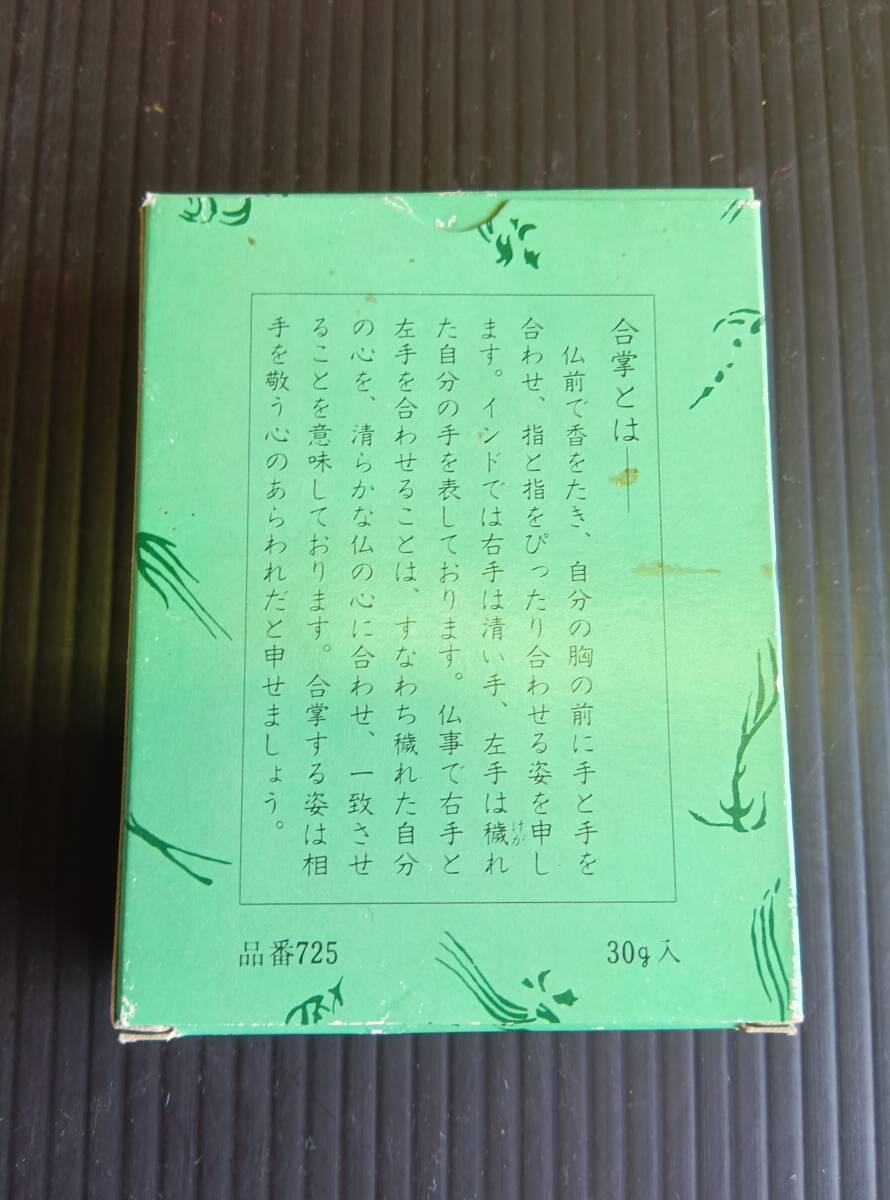 合掌とは――
仏前で香をたき、自分の胸の前に手と手を
合わせ、指と指をぴったり合わせる姿を申し
ます。インドでは右手は清い手、左手は穢れ
けが
た自分の手を表しております。仏事で右手と
左手を合わせることは、すなわち穢れた自分
の心を、清らかな仏の心に合わせ、一致させ
ることを意味しております。合掌する姿は相
手を敬う心のあらわれだと申せましょう。
品番725
30g入